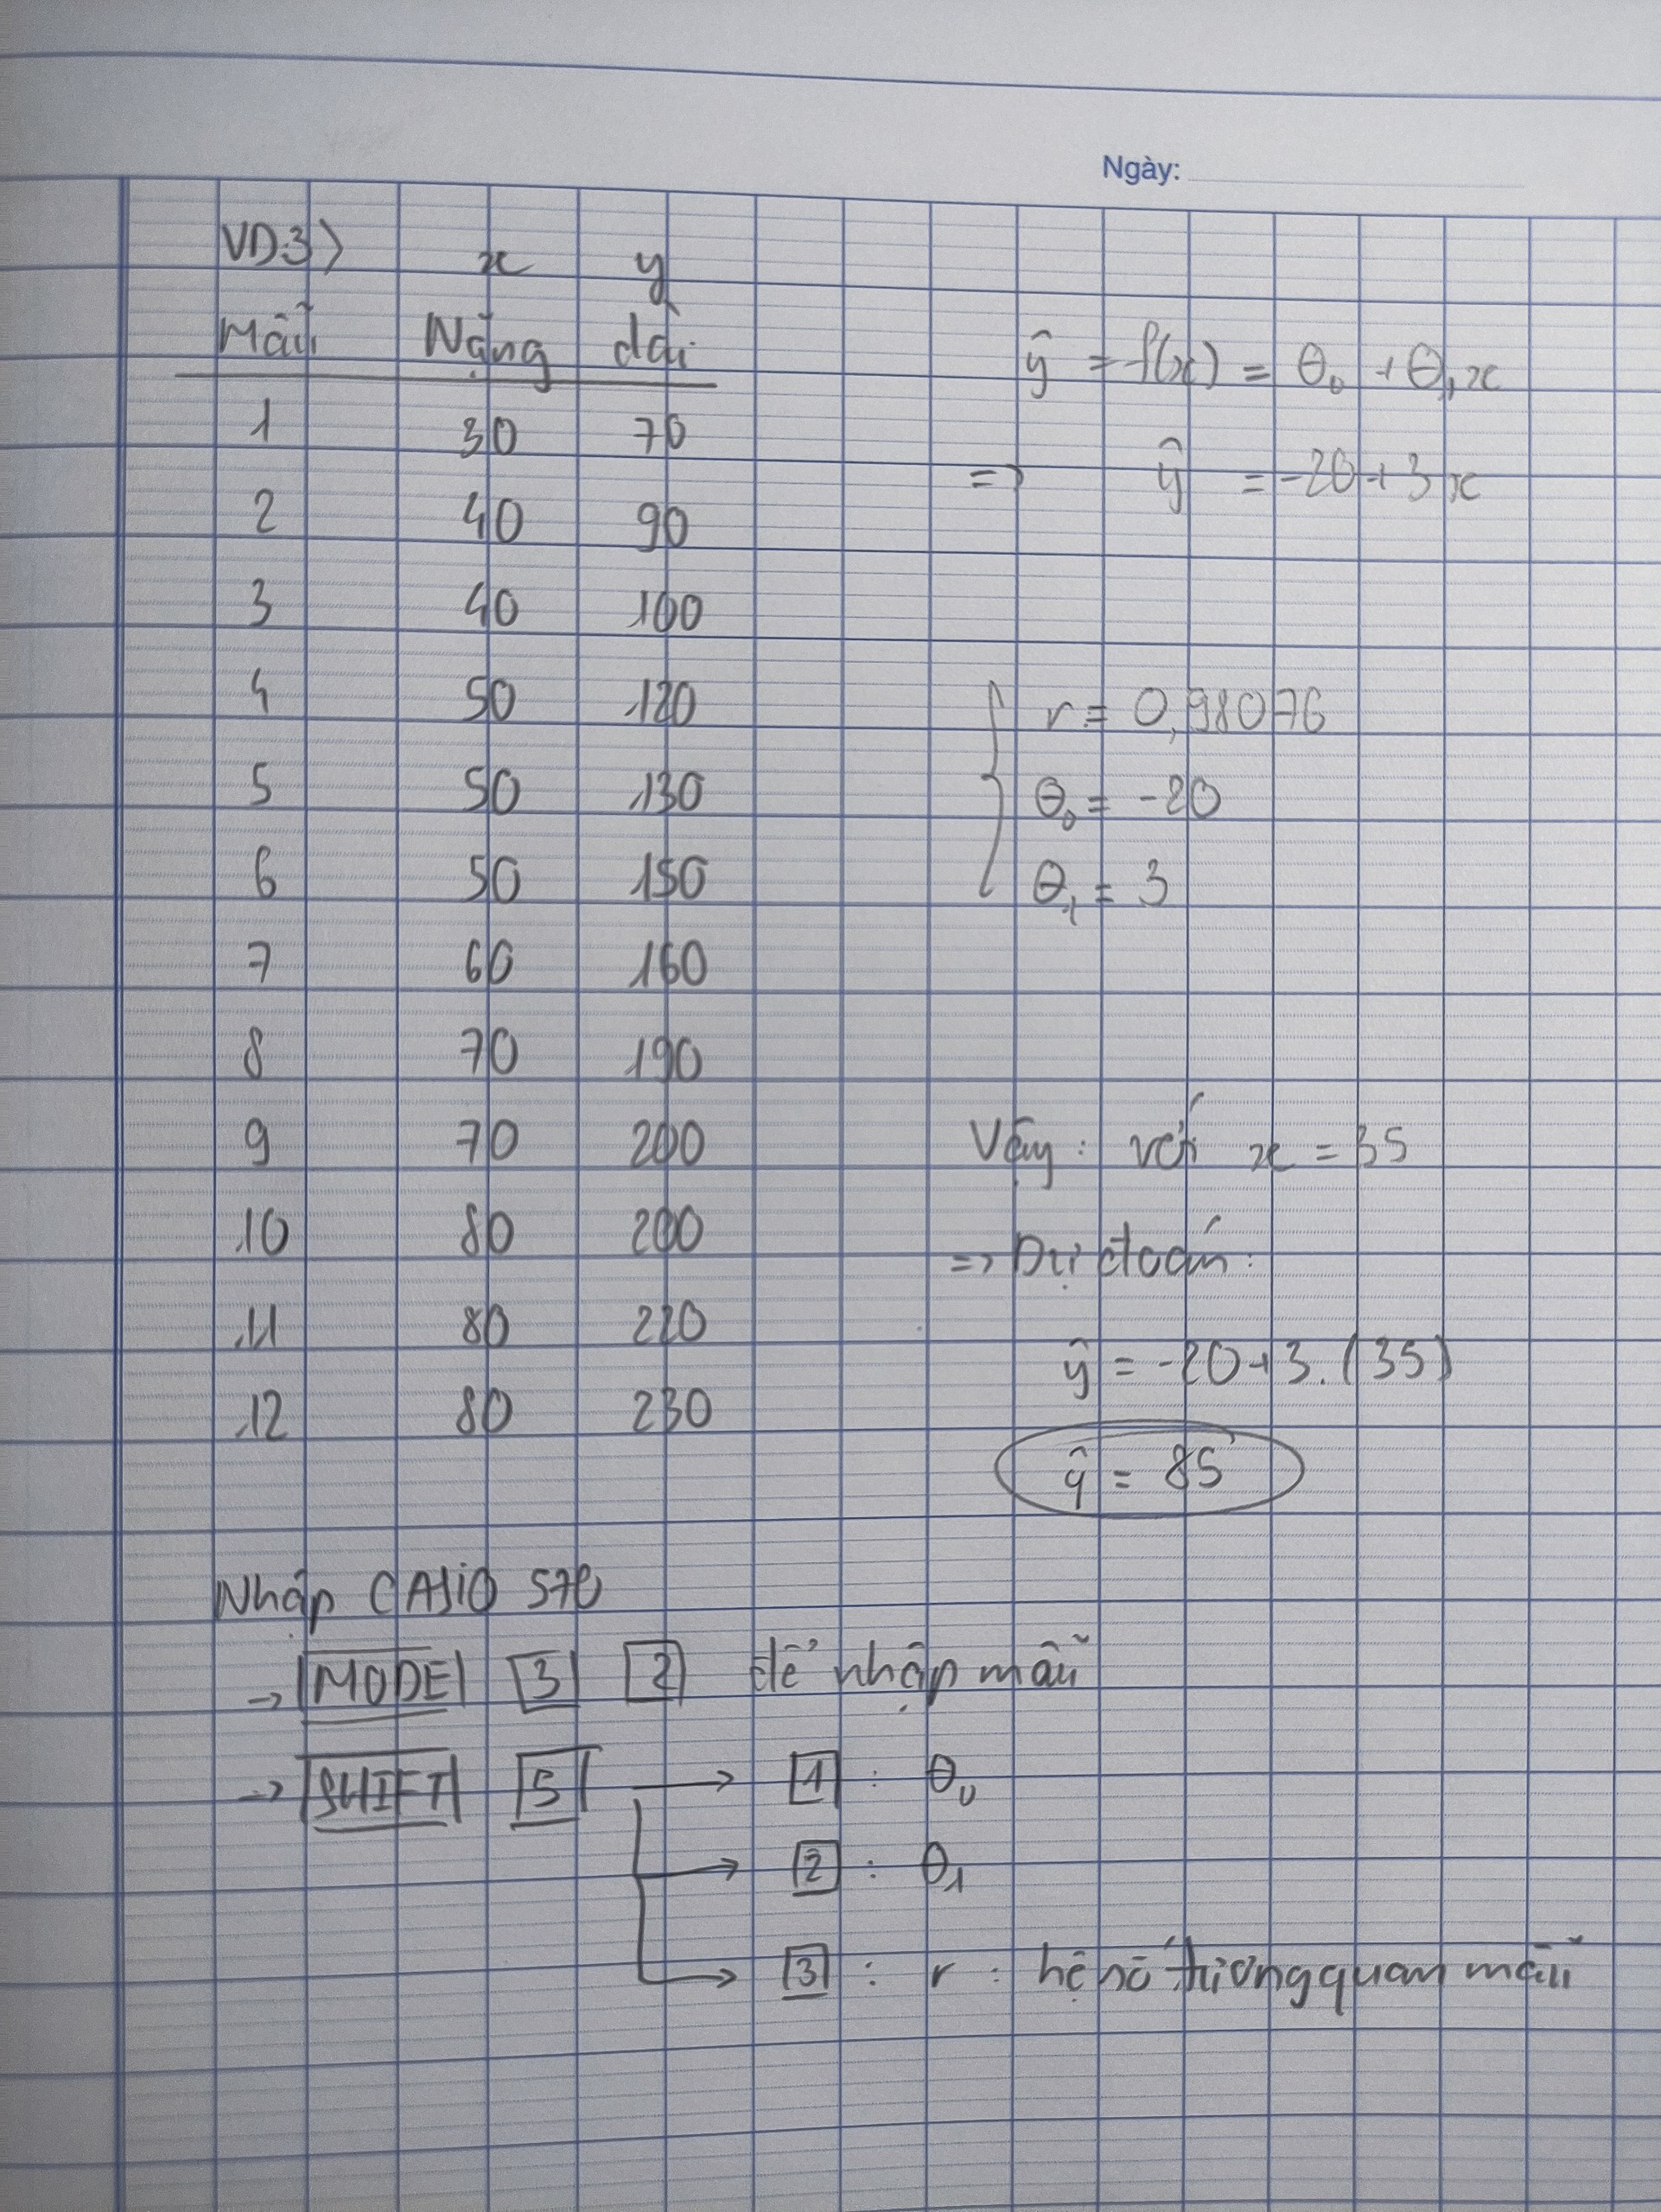 Ngày:
VD3> x y
Mẫu Nặng dài
1 30 70
2 40 90
3 40 100
4 50 120
5 50 130
6 50 150
7 60 160
8 70 190
9 70 200
10 80 200
11 80 220
12 80 230
ŷ = f(x) = θ₀ + θ₁x
=> ŷ = -20 + 3x
r = 0,98076
θ₀ = -20
θ₁ = 3
Vậy: với x = 35
=> Dự đoán:
ŷ = -20 + 3.(35)
ŷ = 85
Nhập CASIO 570
→ MODE 3 2 để nhập mẫu
→ SHIFT 5 → 1 : θ₀
→ 2 : θ₁
→ 3 : r : hệ số tương quan mẫu